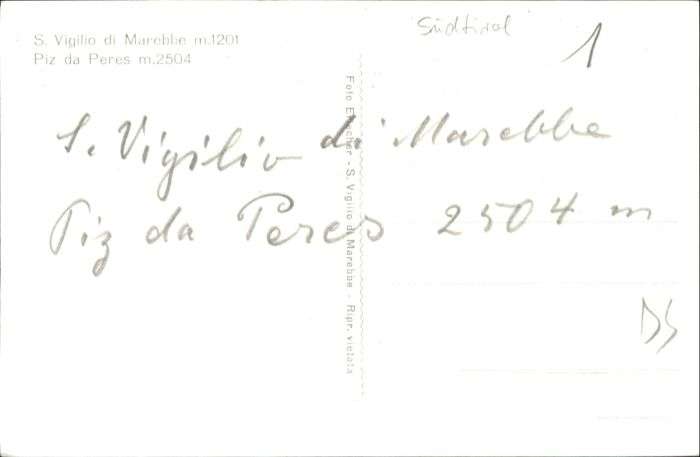 S. Vigilio di Marebbe m.1201
Piz da Peres m.2504
Südtirol
1
S. Vigilio di Marebbe
Piz da Peres 2504 m
- S. Vigilio di Marebbe - Ripr. vietata
DS